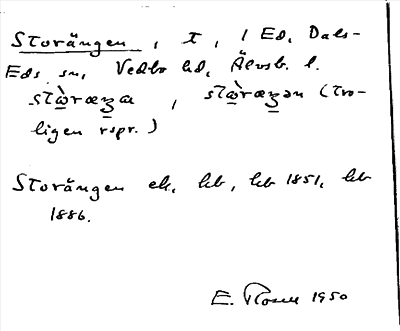 Storängen, t, i Ed, Dals-
Eds sn, Vedbo hd, Älvsb. l.
stὼræŋa, stὼræŋən (tro-
ligen rspr.)
Storängen ek, hb, hb 1851, hb
1886.
E. 1950